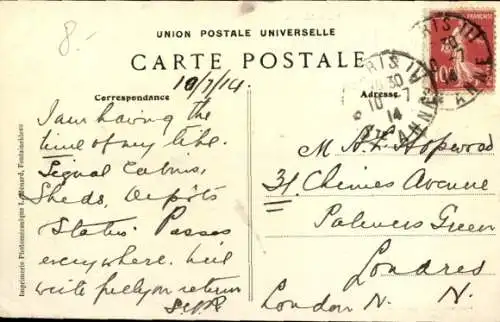 8.-
UNION POSTALE UNIVERSELLE
CARTE POSTALE
10/7/14
Correspondance
Adresse
I am having the
time of my life.
Signal Cabins,
Sheds, Depots
Status. Passes
everywhere. Will
write fully on return
M A. L. Hopwood
31 Chimes Avenue
Palmers Green
Londres
London N. N.
Imprimerie Photomécanique L. Ménard, Fontainebleau
PARIS
30
10 - 7
14
ANNE